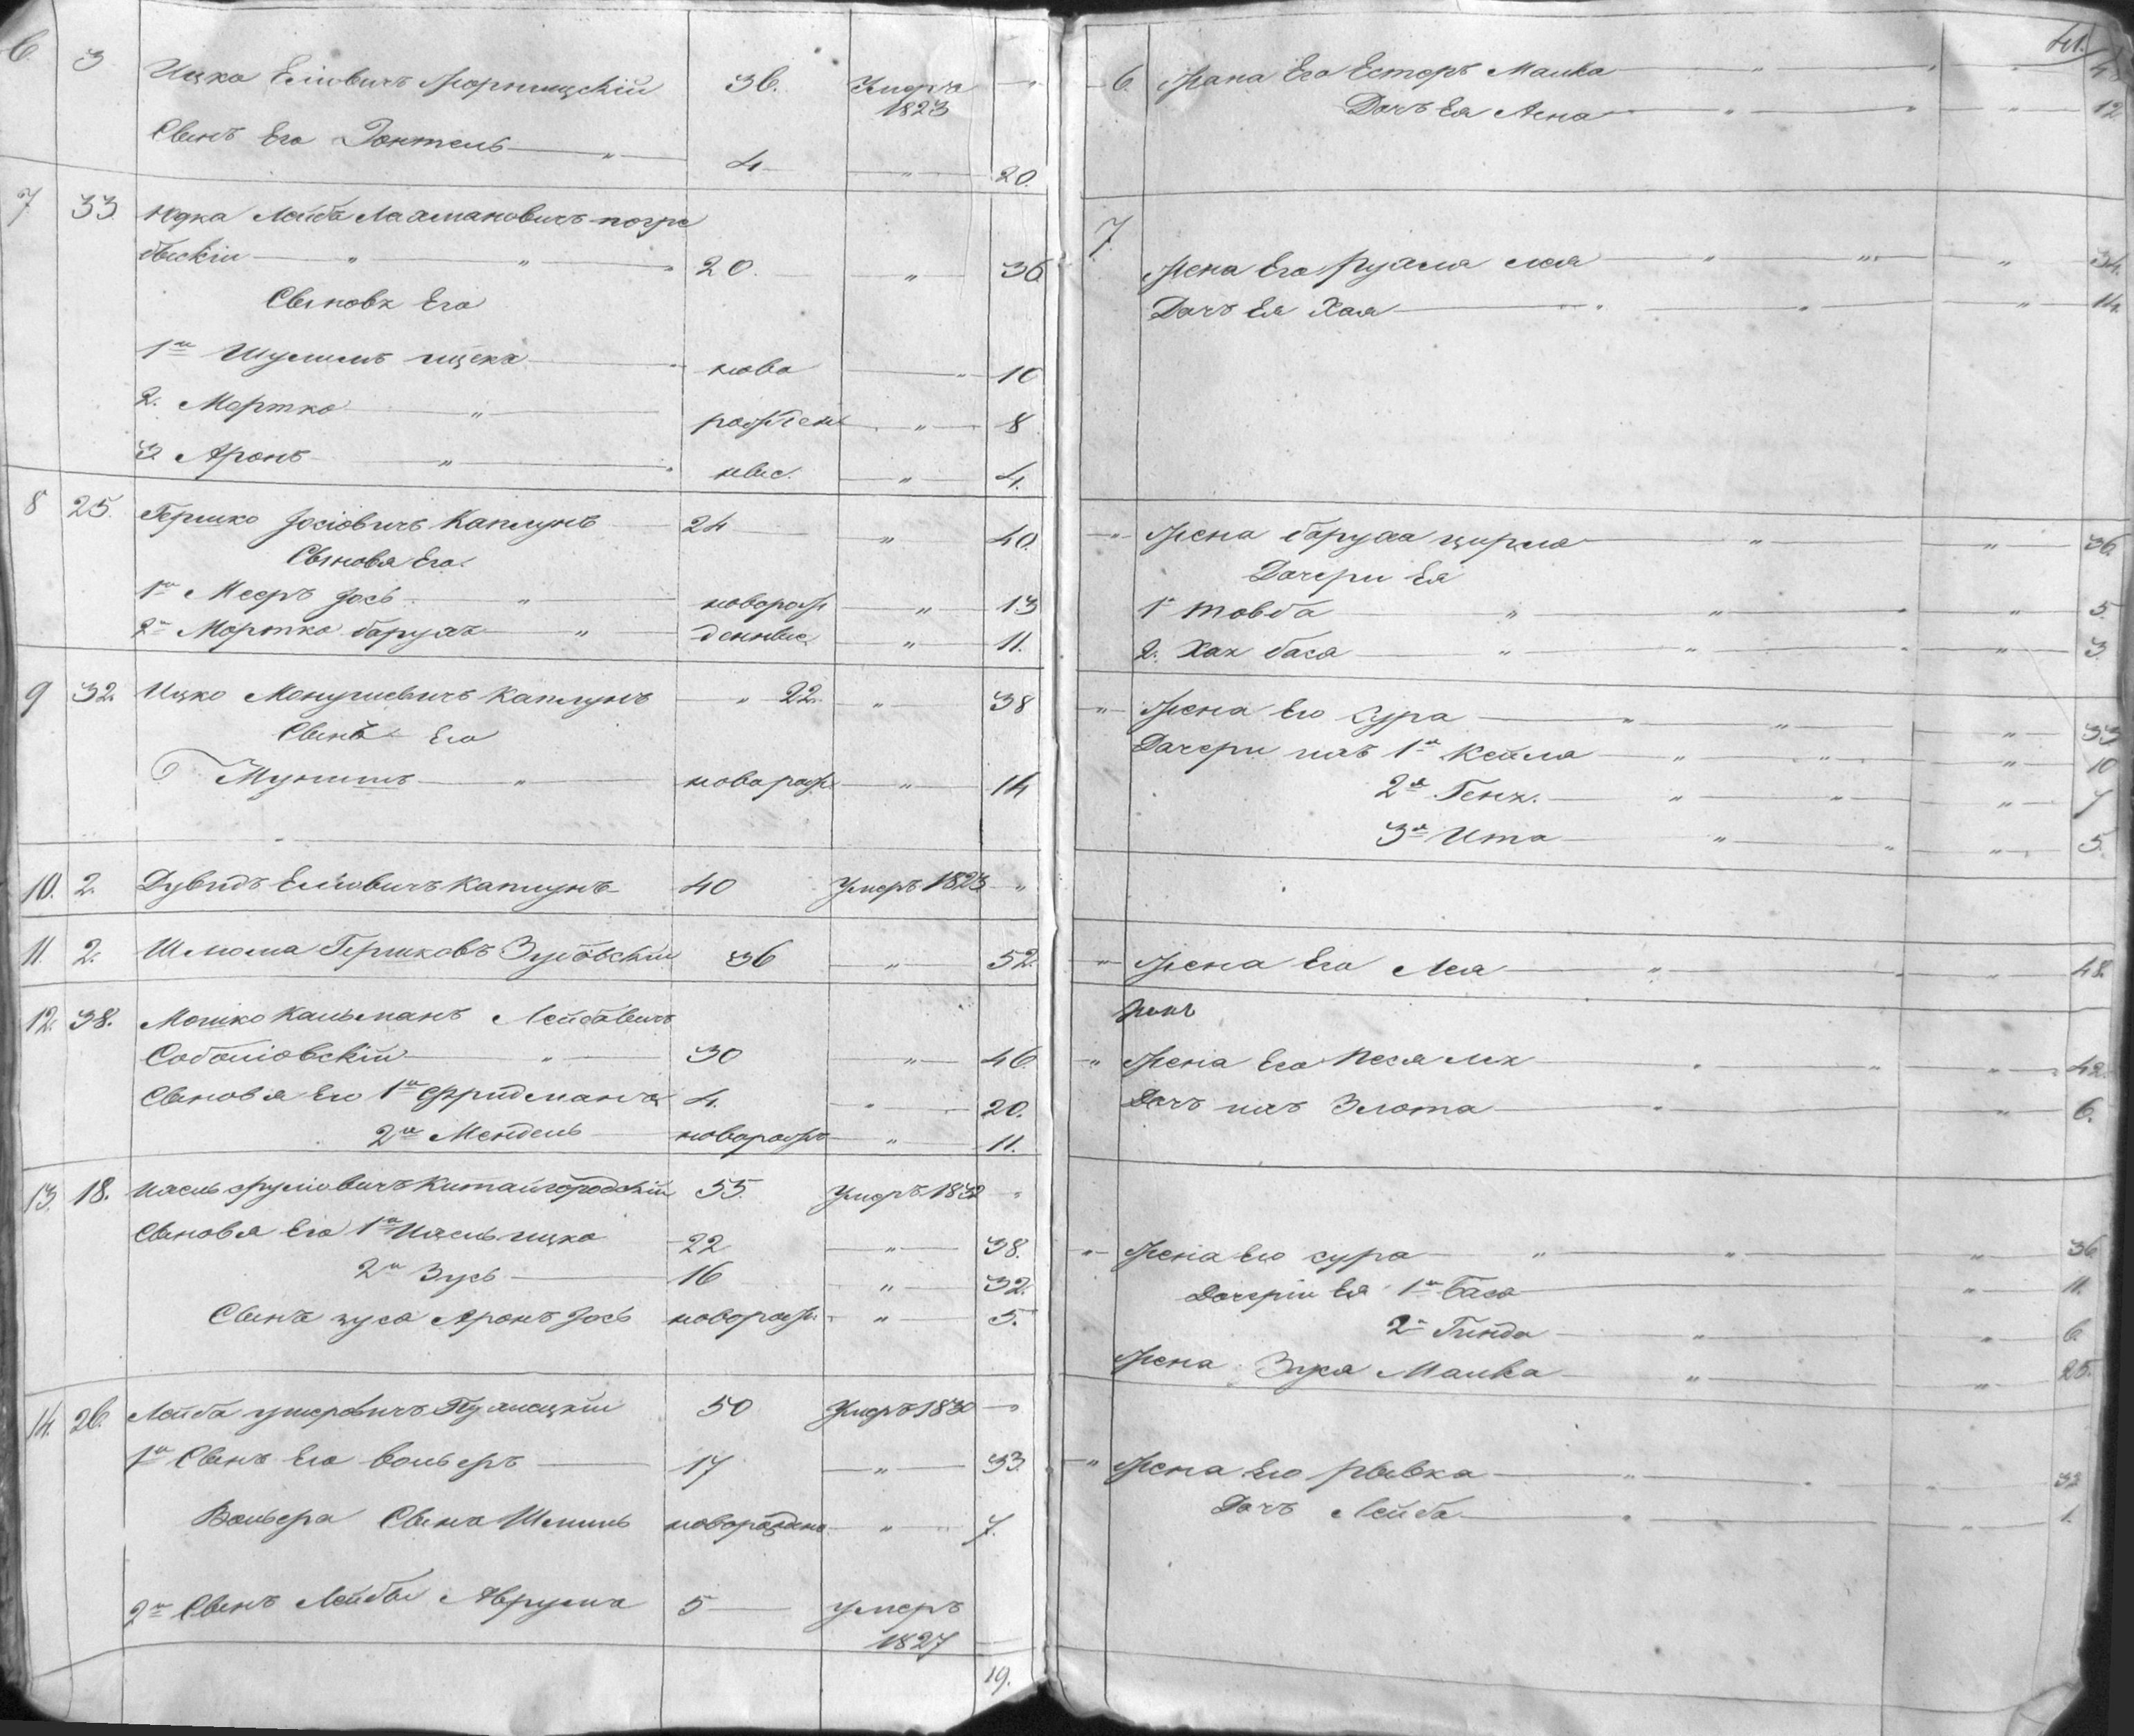 6 3 Ицко Еліовичъ 36. Умеръ 1823
Сынъ Его 4 20.
7 33. Юдка Лейба Лахмановичъ погре
быскій 20. 36
Сыновя Его
1й Шулимъ ицека ново 10
2. Мортко рожден 8
3 Аронъ ныс. 4.
8 25. Гершко Іосіовичъ Каплунъ 24 40.
Сыновя Его.
1й Мееръ Іось новорож 13
2й Мортко барухъ денные 11.
9 32. Ицко Монушевичъ Каплунъ 22. 38
Сынъ Его
Мунишъ новорож 14
10. 2. Дувидъ Еліовичъ Каплунъ 40 Умеръ 1823
11. 2. Шлиома Гершковъ 36 52.
12. 38. Мошко Кальманъ Лейбовичъ
Соболіовскій 30 46
Сыновя Его 1й Фридманъ 4. 20.
2й Мендель новорож 11.
13. 18. Китайгородскій 55. Умеръ 1832
Сыновя Его 1й ицко 22 38.
2й Зусь 16 32.
Сынъ зуса Аронъ Іось новорож. 5.
14. 26. Лейба ушеровичъ 50 Умеръ 1830
1й Сынъ Его Вольеръ 17 33.
Вольера Сынъ Шмиль новорождено 7.
2й Сынъ Лейбы Аврумъ 5 умеръ
1827
19.
41.
6. Жана Его Естеръ Малка
Дочъ Ея 12
7.
Жена Его Рухля лея 34.
Дочъ Ея Хая 14.
Жена баруха цирля 36.
Дочери Ея
1я Товба 5.
2. Хая баса 3
Жена Его Сура 33
Дочери ихъ 1я Кейла 10
2я Геня. 7
3я Ита 5.
Жена Его Лея 48.
Жена Его Песя 42.
Дочъ ихъ Злота 6.
Жена Его сура 36
Дочеріи Ея 1я баса 11.
2я Гинда 6
Жена Зуся Малка 25.
Жена Его рывка 32
Дочъ Лейба 1.